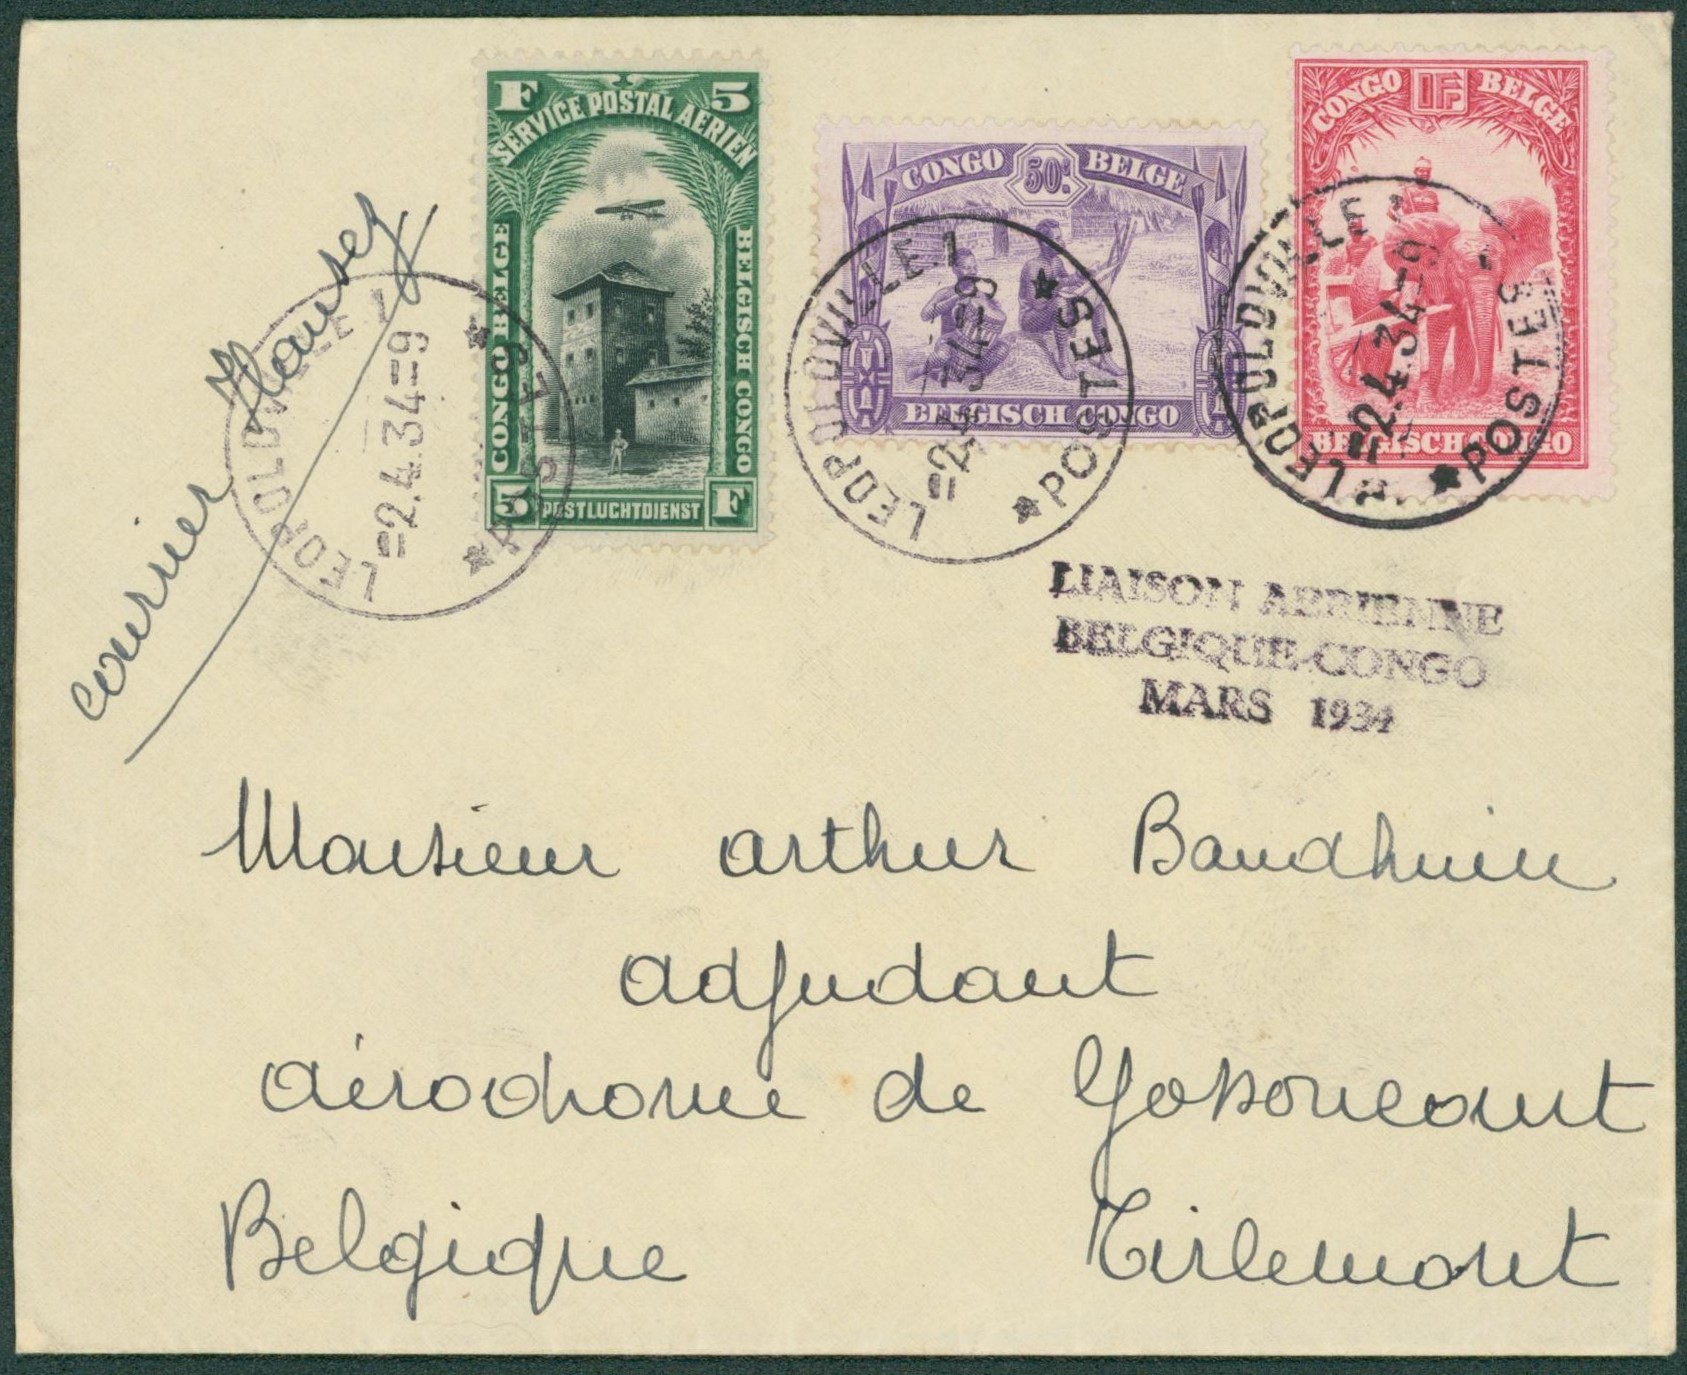 F 5
SERVICE POSTAL AERIEN
CONGO BELGE
BELGISCH CONGO
5 POSTLUCHTDIENST F
CONGO 50c. BELGE
BELGISCH CONGO
CONGO 1F BELGE
BELGISCH CONGO
LEOPOLDVILLE 1
=2.4.34=9
★ POSTES ★
LEOPOLDVILLE 1
=2.4.34=9
★ POSTES ★
LEOPOLDVILLE 1
=2.4.34=9
★ POSTES
courrier Hansez
LIAISON AERIENNE
BELGIQUE-CONGO
MARS 1934
Monsieur Arthur Baudhuin
Adjudant
Aérodrome de Gossoncourt
Belgique Tirlemont